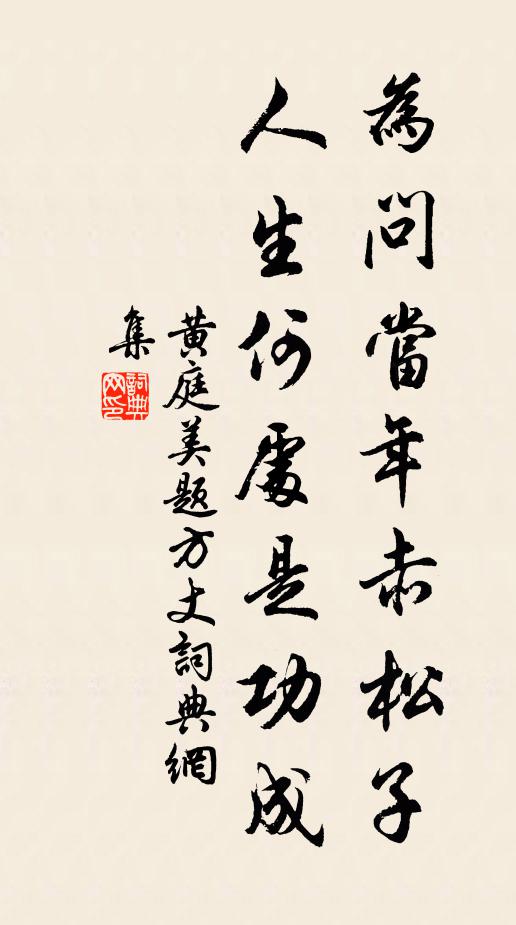 為問當年赤松子
人生何處是功成
黃庭美題方丈詞典網
集
詞典網印